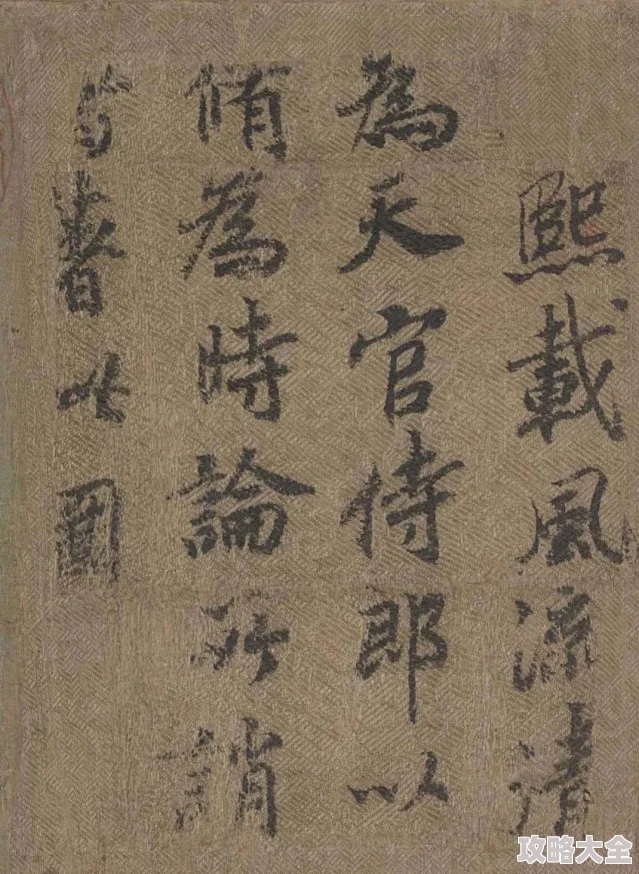 熙載風流清
為天官侍郎以
脩為時論所誚
著此圖
攻略大全